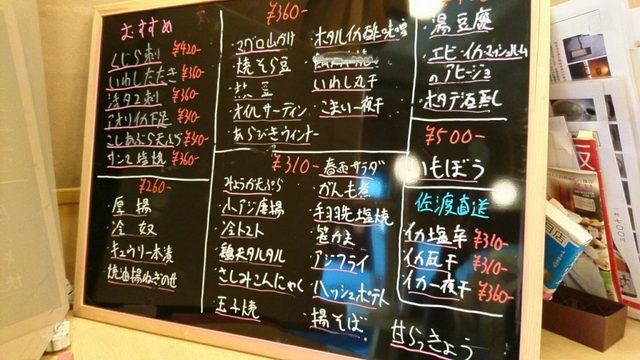 おすすめ
くじら刺 ¥420-
いわしたたき ¥360-
浅〆さば刺 ¥360-
アオリイカ下足 ¥310-
こしあぶら天ぷら ¥340-
サンマ塩焼 ¥360-
¥260-
厚揚
冷奴
キューリ一本漬
焼油揚ねぎのせ
¥360-
・マグロ山かけ
・焼そら豆
・煮豆
・オイルサーディン
・あらびきウインナー
・ホタルイカ酢味噌
・いわし丸干
・こまい一夜干
¥310-
・みょうが天ぷら
・小アジ唐揚
・冷トマト
・鶏天タルタル
・さしみこんにゃく
・玉子焼
・春雨サラダ
・がんも煮
・手羽先塩焼
・笹かま
・アジフライ
・ハッシュポテト
・揚そば
・湯豆腐
・エビ・イカ・マッシュルーム
のアヒージョ
・ホタテ酒蒸し
¥500-
・いもぼう
佐渡直送
・イカ塩辛 ¥310-
・イカ瓦干 ¥310-
・イカ一夜干 ¥360-
・甘らっきょう